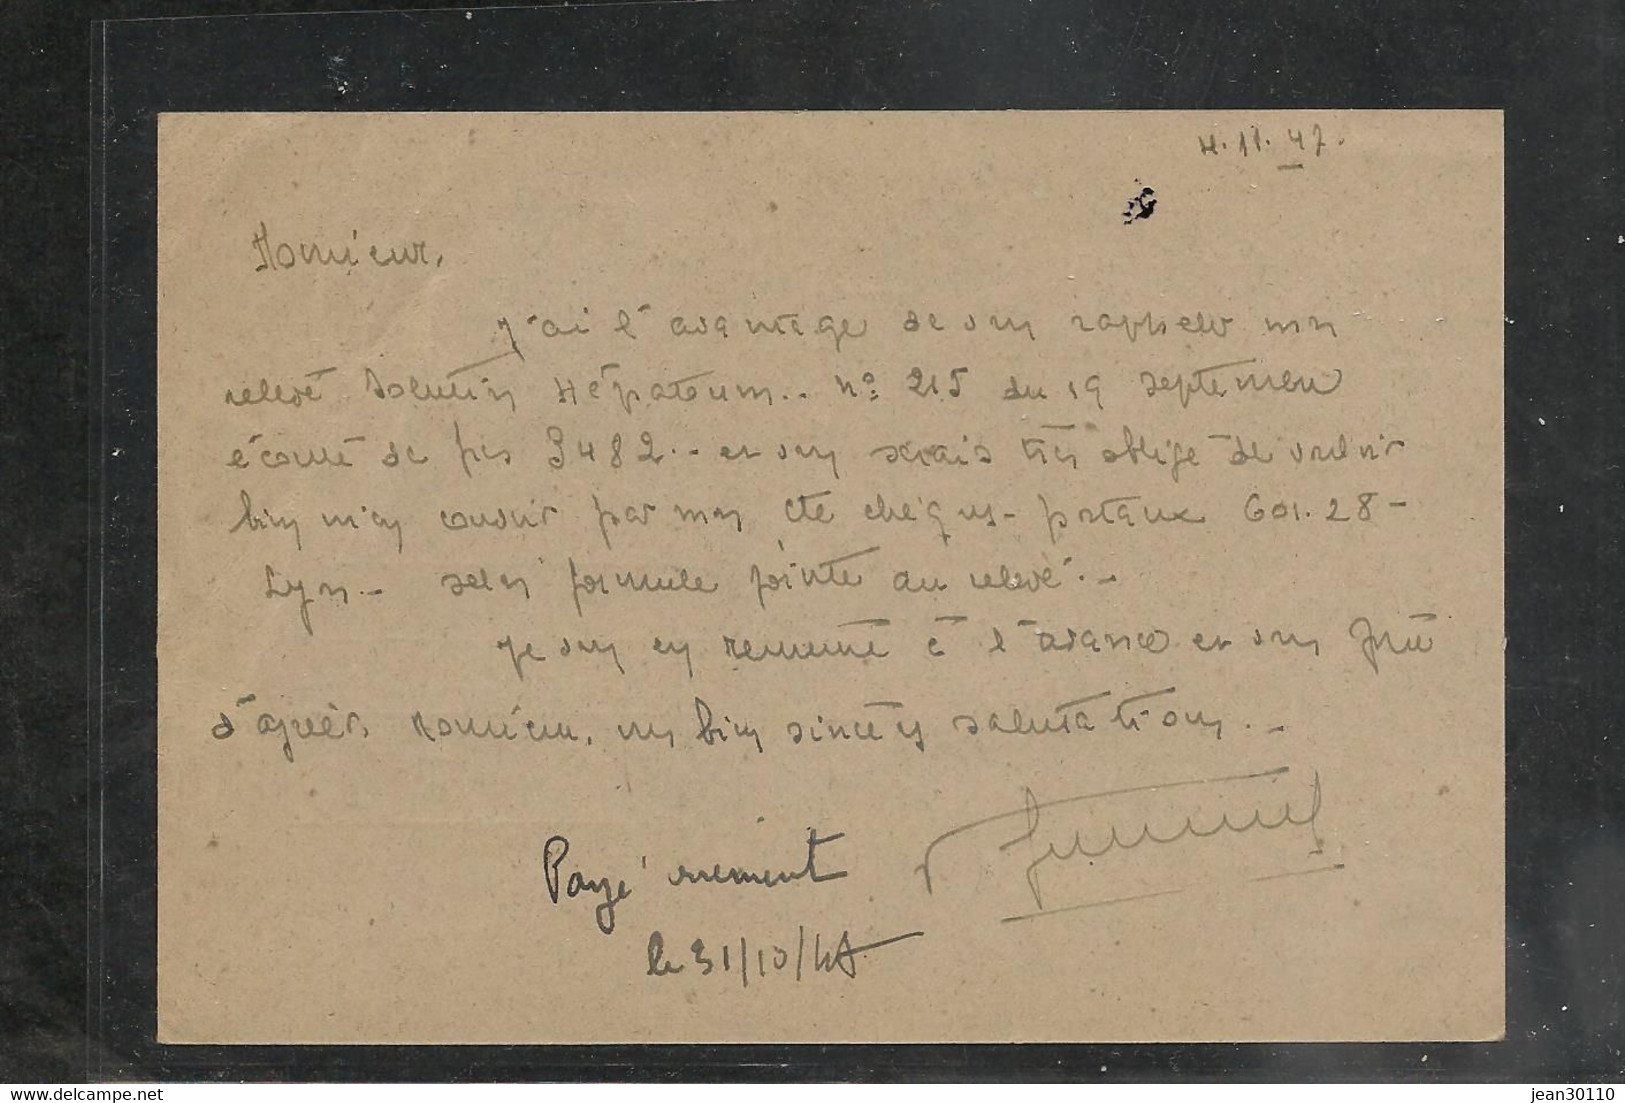 4.11.47.
Monsieur,
J'ai l'avantage de vous rappeler mon
relevé Solution Hépatoum.. n° 215 du 19 septembre
écoulé de frs 3482.- et vous serais très obligé de vouloir
bien m'en couvrir par mon cte chèques-postaux 601.28-
Lyon.- selon formule jointe au relevé.-
Je vous en remercie à l'avance et vous prie
d'agréer, Monsieur, mes bien sincères salutations.-
Payé
le 31/10/47
delcampe.net
jean30110